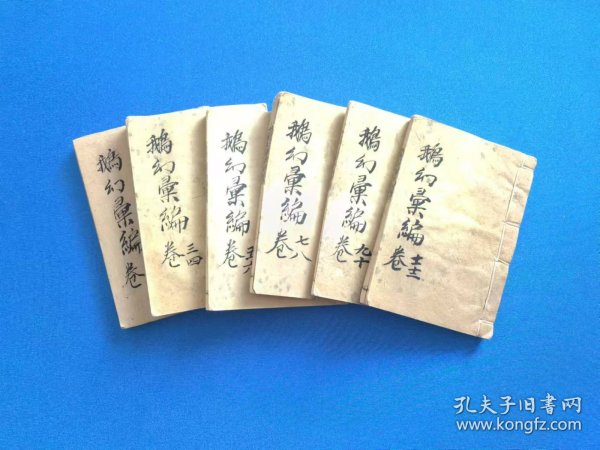 鵝幻彙編 卷
鵝幻彙編 卷三四
鵝幻彙編 卷五六
鵝幻彙編 卷七八
鵝幻彙編 卷九十
鵝幻彙編 卷十一十二
孔夫子旧书网
www.kongfz.com